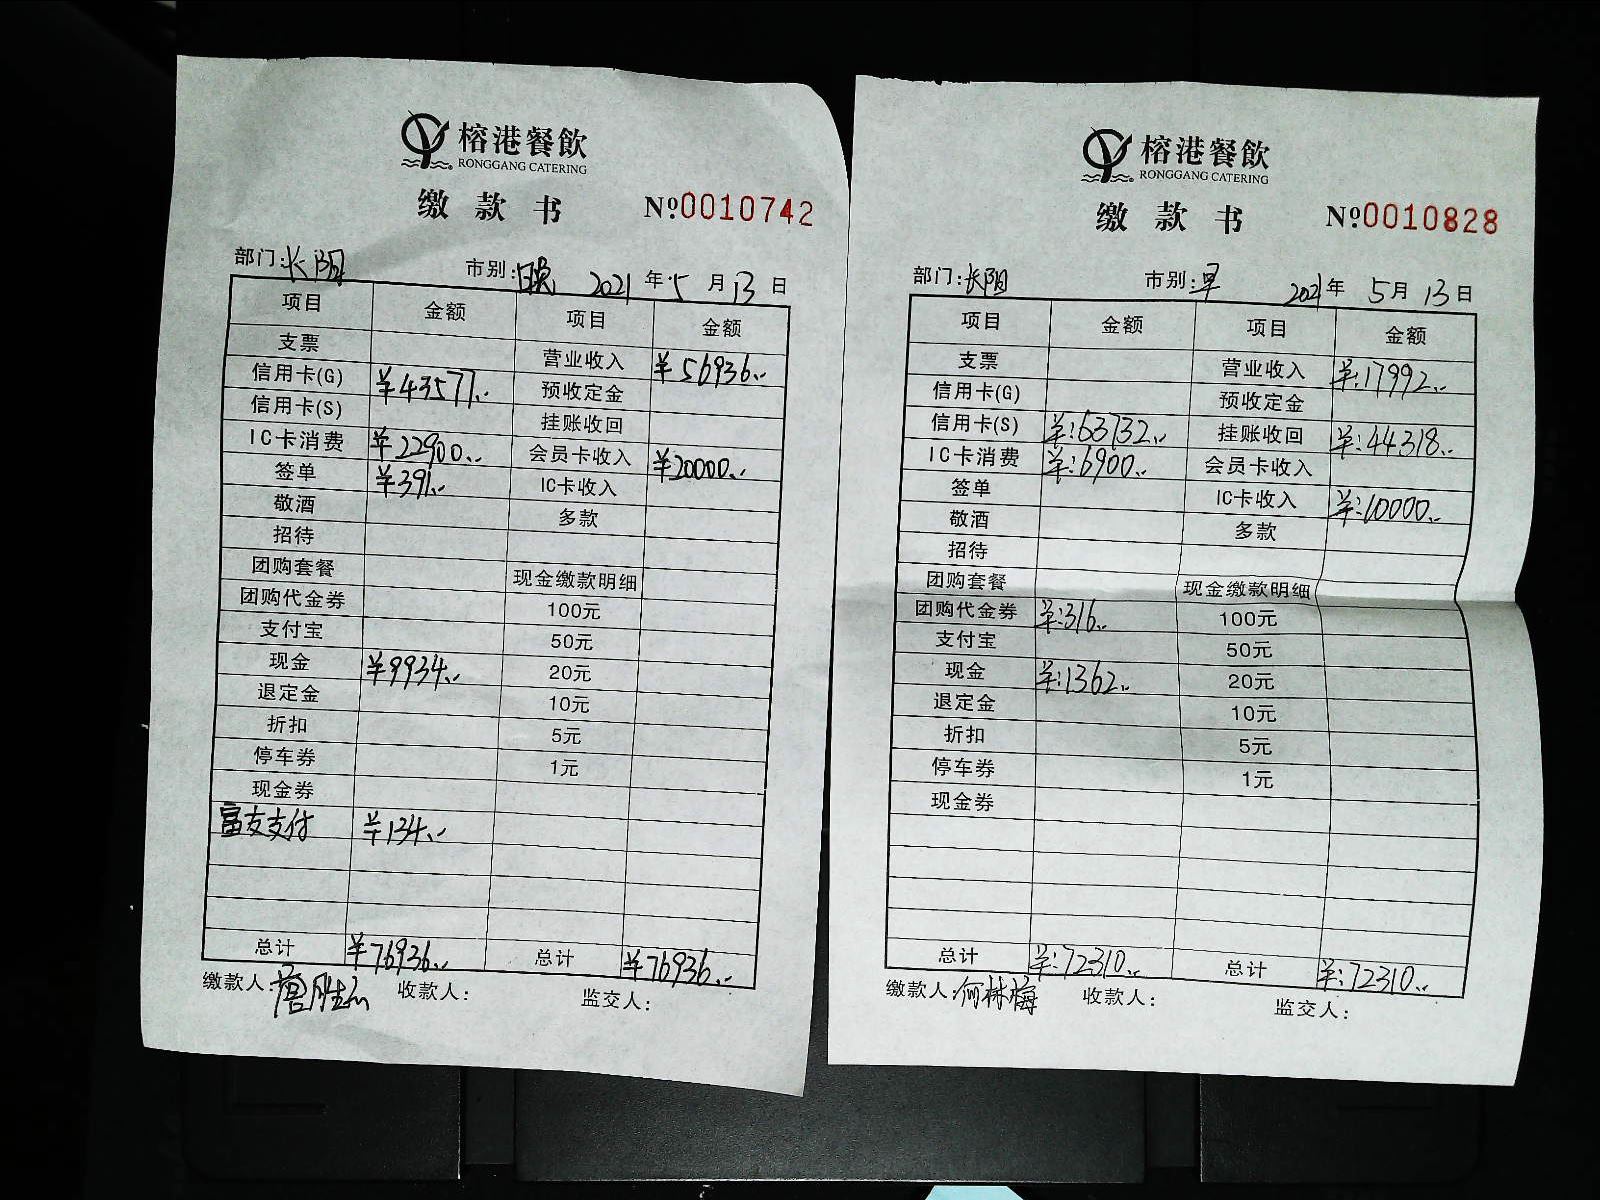 榕港餐飲
RONGGANG CATERING
缴款书 №0010742
部门:长阳 市别:晚 2021年5月13日
项目 金额 项目 金额
支票 营业收入 ¥56936..
信用卡(G) ¥43577.. 预收定金
信用卡(S) 挂账收回
IC卡消费 ¥22900.. 会员卡收入 ¥20000..
签单 ¥391.. IC卡收入
敬酒 多款
招待
团购套餐 现金缴款明细
团购代金券 100元
支付宝 50元
现金 ¥9934.. 20元
退定金 10元
折扣 5元
停车券 1元
现金券
富友支付 ¥134..
总计 ¥76936.. 总计 ¥76936..
缴款人: 收款人: 监交人:
榕港餐飲
RONGGANG CATERING
缴款书 №0010828
部门:长阳 市别:早 2021年5月13日
项目 金额 项目 金额
支票 营业收入 ¥:17992..
信用卡(G) 预收定金
信用卡(S) ¥:63732.. 挂账收回 ¥:44318..
IC卡消费 ¥:6900.. 会员卡收入
签单 IC卡收入 ¥:10000..
敬酒 多款
招待
团购套餐 现金缴款明细
团购代金券 ¥:316.. 100元
支付宝 50元
现金 ¥:1362.. 20元
退定金 10元
折扣 5元
停车券 1元
现金券
总计 ¥:72310.. 总计 ¥:72310..
缴款人:何林梅 收款人: 监交人: